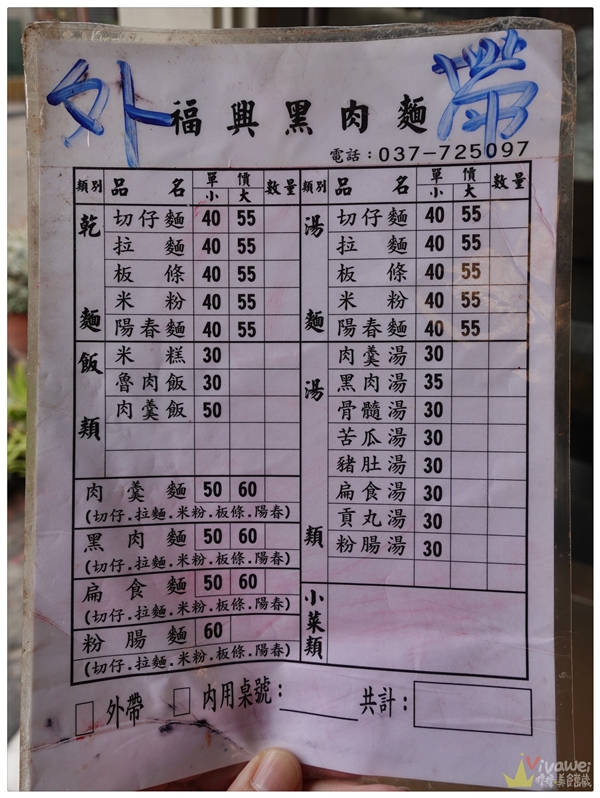 外 福興黑肉麵 帶
電話：037-725097
類別 品名 單價 小 大 數量
乾麵
切仔麵 40 55
拉麵 40 55
板條 40 55
米粉 40 55
陽春麵 40 55
飯類
米糕 30
魯肉飯 30
肉羹飯 50
肉羹麵 50 60
(切仔.拉麵.米粉.板條.陽春)
黑肉麵 50 60
(切仔.拉麵.米粉.板條.陽春)
扁食麵 50 60
(切仔.拉麵.米粉.板條.陽春)
粉腸麵 60
(切仔.拉麵.米粉.板條.陽春)
類別 品名 單價 小 大 數量
湯麵
切仔麵 40 55
拉麵 40 55
板條 40 55
米粉 40 55
陽春麵 40 55
湯類
肉羹湯 30
黑肉湯 35
骨髓湯 30
苦瓜湯 30
豬肚湯 30
扁食湯 30
貢丸湯 30
粉腸湯 30
小菜類
外帶 內用桌號： 共計：
Vivawei